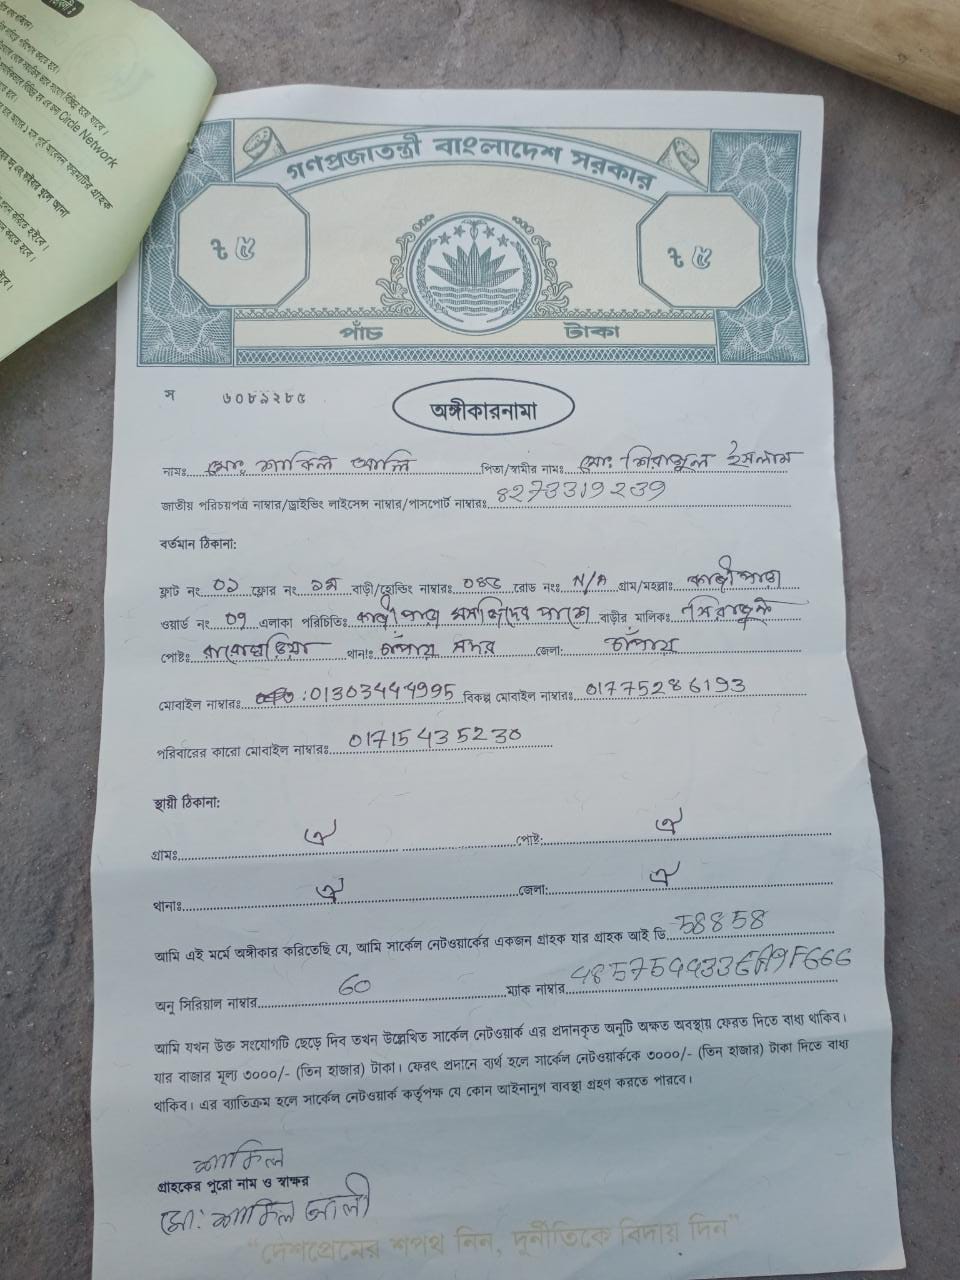 Circle Network
গণপ্রজাতন্ত্রী বাংলাদেশ সরকার
৳ ৫ ৳ ৫
পাঁচ টাকা
স ৬০৮৯২৮৫
অঙ্গীকারনামা
নামঃ মোঃ শাকিল আলি পিতা/স্বামীর নামঃ মোঃ সিরাজুল ইসলাম
জাতীয় পরিচয়পত্র নাম্বার/ড্রাইভিং লাইসেন্স নাম্বার/পাসপোর্ট নাম্বারঃ 8273319239
বর্তমান ঠিকানা:
ফ্লাট নং ০১ ফ্লোর নং ১ম বাড়ী/হোল্ডিং নাম্বারঃ রোড নংঃ N/A গ্রাম/মহল্লাঃ কাজীপাড়া
ওয়ার্ড নং 09 এলাকা পরিচিতিঃ কাজীপাড়া মসজিদের পাশে বাড়ীর মালিকঃ সিরাজুল
পোষ্টঃ থানাঃ চাঁপাই সদর জেলা: চাঁপাই
মোবাইল নাম্বারঃ :01303444995 বিকল্প মোবাইল নাম্বারঃ 01775286193
পরিবারের কারো মোবাইল নাম্বারঃ 01715435230
স্থায়ী ঠিকানা:
গ্রামঃ ঐ পোষ্ট: ঐ
থানাঃ ঐ জেলা: ঐ
আমি এই মর্মে অঙ্গীকার করিতেছি যে, আমি সার্কেল নেটওয়ার্কের একজন গ্রাহক যার গ্রাহক আই ডি 58858
অনু সিরিয়াল নাম্বার 60 ম্যাক নাম্বার
আমি যখন উক্ত সংযোগটি ছেড়ে দিব তখন উল্লেখিত সার্কেল নেটওয়ার্ক এর প্রদানকৃত অনুটি অক্ষত অবস্থায় ফেরত দিতে বাধ্য থাকিব।
যার বাজার মূল্য ৩০০০/- (তিন হাজার) টাকা। ফেরৎ প্রদানে ব্যর্থ হলে সার্কেল নেটওয়ার্ককে ৩০০০/- (তিন হাজার) টাকা দিতে বাধ্য
থাকিব। এর ব্যাতিক্রম হলে সার্কেল নেটওয়ার্ক কর্তৃপক্ষ যে কোন আইনানুগ ব্যবস্থা গ্রহণ করতে পারবে।
শাকিল
গ্রাহকের পুরো নাম ও স্বাক্ষর
মো: শাকিল আলী
"দেশপ্রেমের শপথ নিন, দুর্নীতিকে বিদায় দিন"